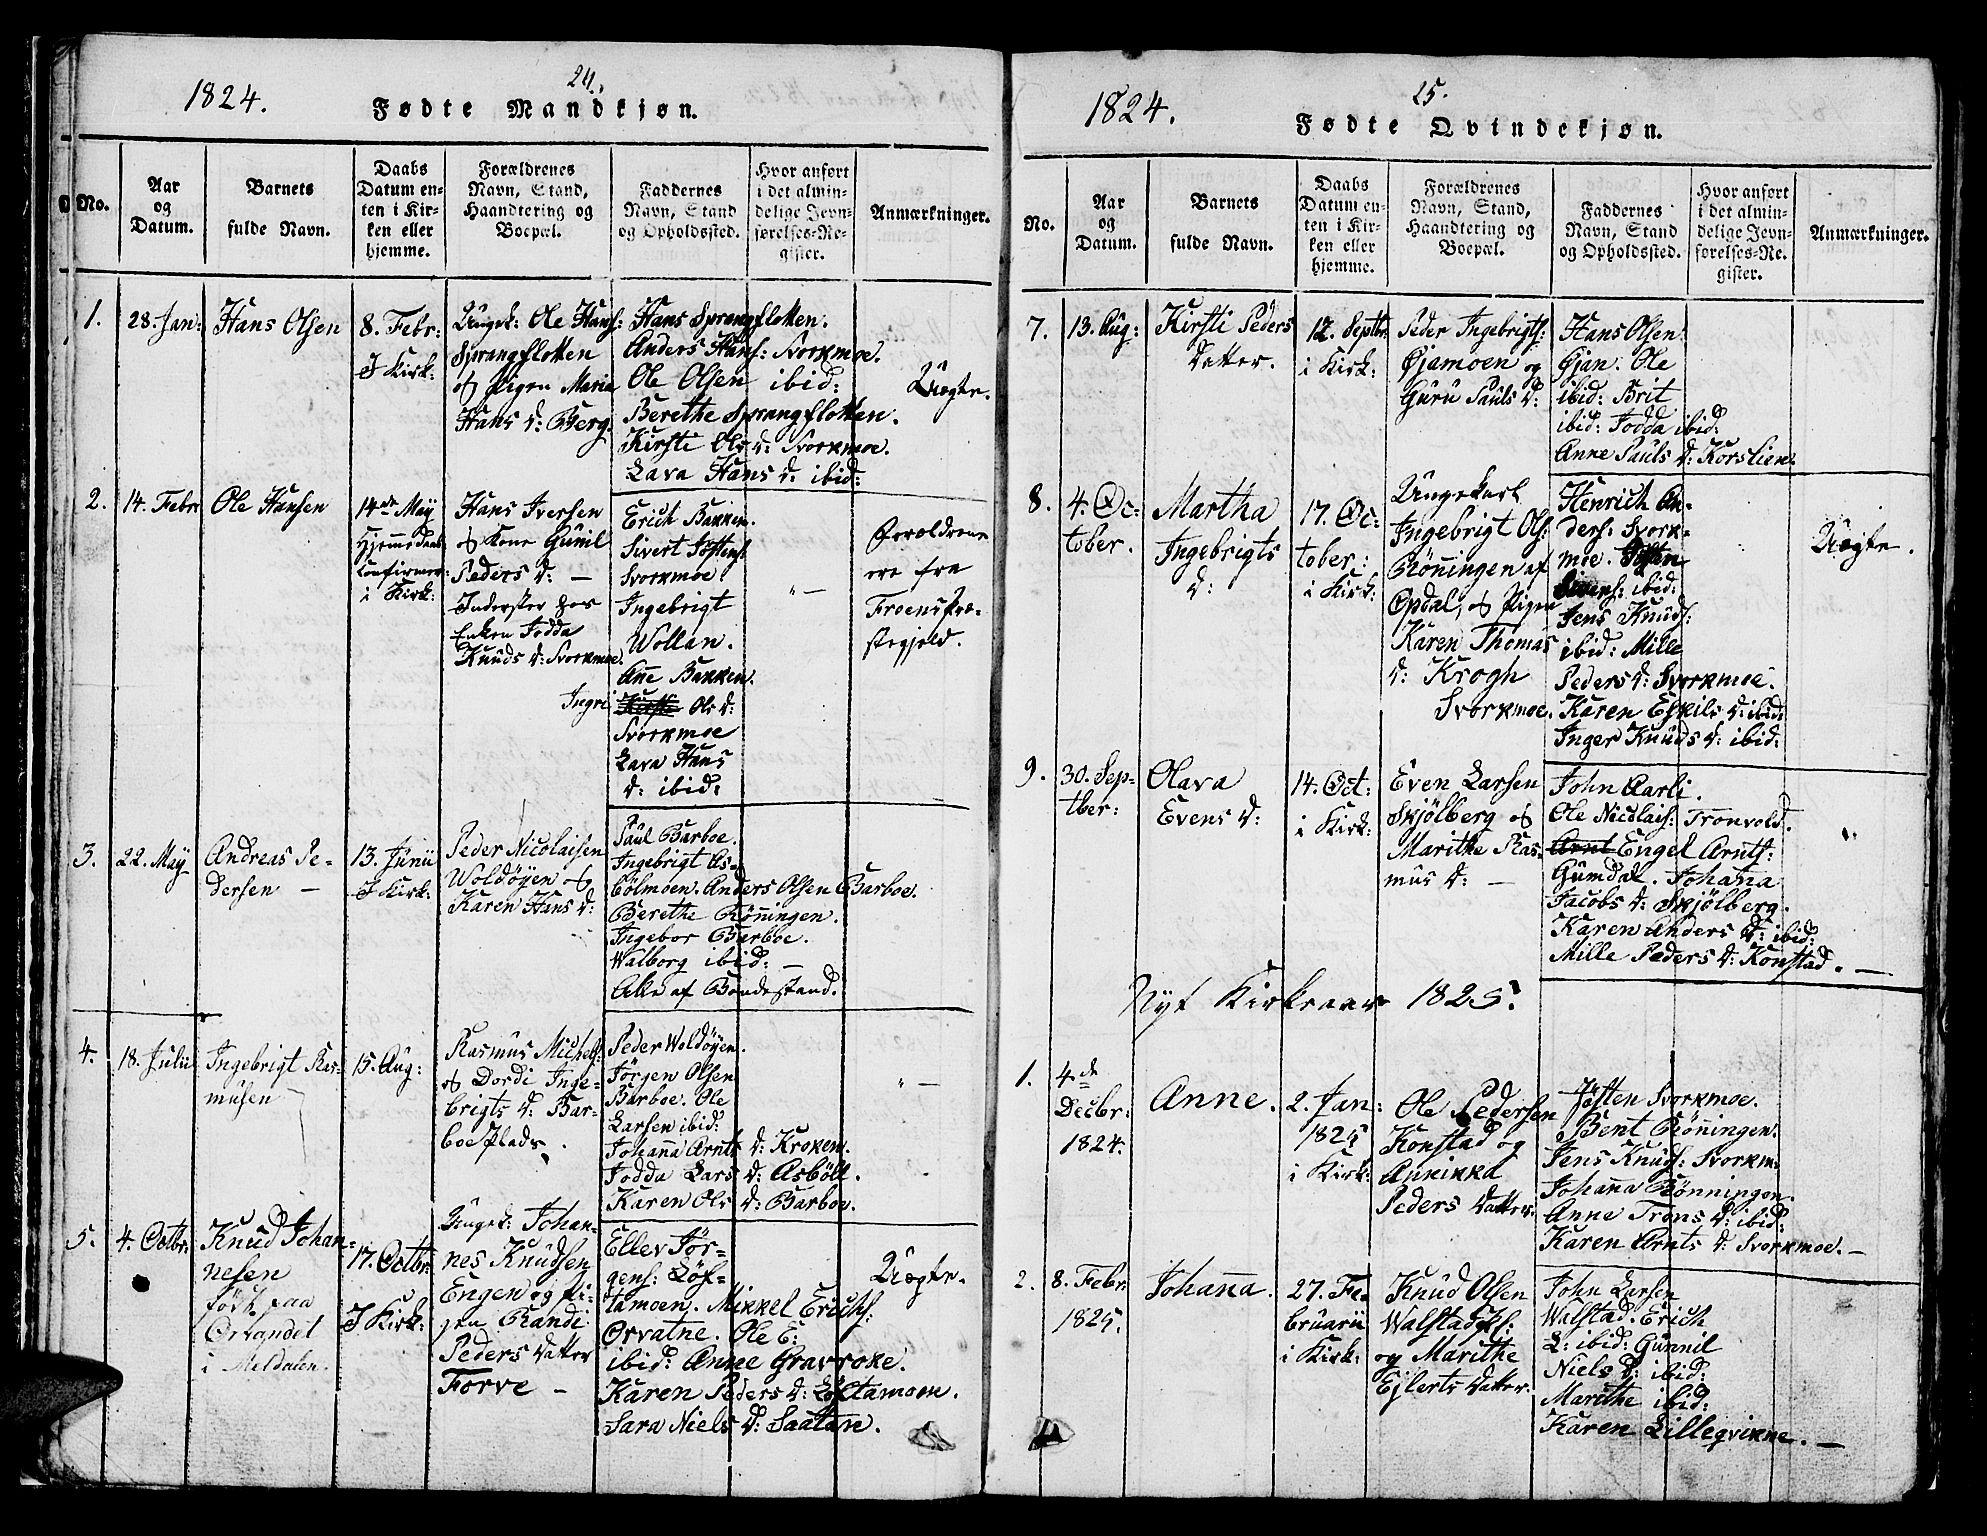 1824.
24.
Fødte Mandkjøn.
No.
Aar
og
Datum.
Barnets
fulde Navn.
Daabs
Datum en-
ten i Kir-
ken eller
hjemme.
Forældrenes
Navn, Stand,
Haandtering og
Boepæl.
Faddernes
Navn, Stand
og Opholdssted.
Hvor anført
i det almin-
delige Jevn-
førelses-Re-
gister.
Anmærkninger.
1.
28. Jan:
Hans Olsen
8. Febr:
I Kirk:
Ungek: Ole Hans:
Sprangflotten
og Pigen Maria
Hans d: Berg.
Hans Sprangflotten.
Anders Hans: Svorkmoe.
Ole Olsen ibid:
Berethe Sprangflotten.
Kirsti Ols d: Svorkmoe.
Lava Hans d: ibid:
Uægte.
2.
14. Febr
Ole Hansen
14de May
Hjemmedaab
Confirmer:
i Kirk:
Hans Iversen
og Kone Gunil
Peders d: —
Inderster hos
Enken Jodda
Knuds d: Svorkmoe.
Erich Bakken.
Sivert Jøstens:
Svorkmoe
Ingebrigt
Wollan.
Anne Bakken.
Ingri Kirsti Ols d:
Svorkmoe
Lava Hans
d: ibid:
" —
Forældrene
ere fra
Froens Præ-
stegjeld.
3.
22. May
Andreas Pe-
dersen —
13. Junii
I Kirk:
Peder Nicolaisen
Woldøyen og
Karen Hans d:
Paul Barboe.
Ingebrigt As-
bølmoen. Anders Olsen Barboe.
Berethe Rønningen.
Ingebor Barboe.
Walborg ibid: —
Alle af Bondestand.
4.
18. Julii
Ingebrigt Ras-
musen
15. Aug:
Rasmus Michels:
og Dordi Inge-
brigts d: Bar-
boe Plads.
Peder Woldøyen.
Jørgen Olsen
Barboe. Ole
Larsen ibid:
Johanna Arnts d: Kroken.
Jodda Lars d: Asbøll.
Karen Ols d: Barboe.
" —
5.
4. Octbr:
Knud Johan-
nesen
født paa
Orkandet
i Meldalen.
17. Octbr:
I Kirk:
Ungek: Johan-
nes Knudsen
Engen og Pi-
gen Randi
Peders datter
Forve —
Ellev Jør-
gens: Løf-
tamoen. Mikkel Erichs:
Orvatne. Ole E:
ibid: Anne Gravroke.
Karen Peders d: Løftamoen.
Sara Niels d: Saatan.
Uægte.
1824.
25.
Fødte Qvindekjøn.
No.
Aar
og
Datum.
Barnets
fulde Navn.
Daabs
Datum en-
ten i Kir-
ken eller
hjemme.
Forældrenes
Navn, Stand,
Haandtering og
Boepæl.
Faddernes
Navn, Stand
og Opholdssted.
Hvor anført
i det almin-
delige Jevn-
førelses-Re-
gister.
Anmærkninger.
7.
13. Aug:
Kirsti Peders
datter.
12. Septbr
i Kirk:
Peder Ingebrigts:
Øjamoen og
Guru Pauls d:
Hans Olsen
Øjan. Ole
ibid: Brit
ibid: Jodda ibid:
Anne Pauls d: Korslien.
8.
4. Oc-
tober.
Martha
Ingebrigts
d:
17. Oc-
tober:
i Kirk:
Ungekarl
Ingebrigt Ols:
Rønningen af
Opdal, og Pigen
Karen Thomas
d: Krogh
Svorkmoe.
Henrich An-
ders: Svork-
moe. Jøsten
Sivers: ibid:
Jens Knuds:
ibid: Mille
Peders d: Svorkmoe.
Karen Eskils d: ibid:
Inger Knuds d: ibid:
Uægte.
9.
30. Sep-
tber:
Olava
Evens d:
14. Oct:
i Kirk:
Even Larsen
Skjølberg og
Marithe Ras-
mus d: —
John Aarli.
Ole Nicolais: Tronvold.
Arnt Engel Arnts:
Gumdal. Johanna
Jacobs d: Skjølberg.
Karen Anders d: ibid:
Mille Peders d: Konstad. —
"
Nyt Kirkeaar 1825.
1.
4de
Decbr:
1824.
Anne.
2. Jan:
1825
i Kirk:
Ole Pedersen
Konstad og
Annikka
Peders datter.
Jøsten Svorkmoe.
Bent Rønningen.
Jens Knuds: Svorkm:
Johanna Rønningen.
Anne Trons d: ibid:
Karen Arnts d: Svorkmoe. —
2.
8. Febr:
1825.
Johanna.
27. Fe-
bruarii
i Kirk:
Knud Olsen
Walstad Pl:
og Marithe
Ejlerts datter.
John Larsen
Walstad. Erich
L: ibid: Gunnil
Niels d: ibid:
Marithe ibid:
Karen Lillegvikne. —